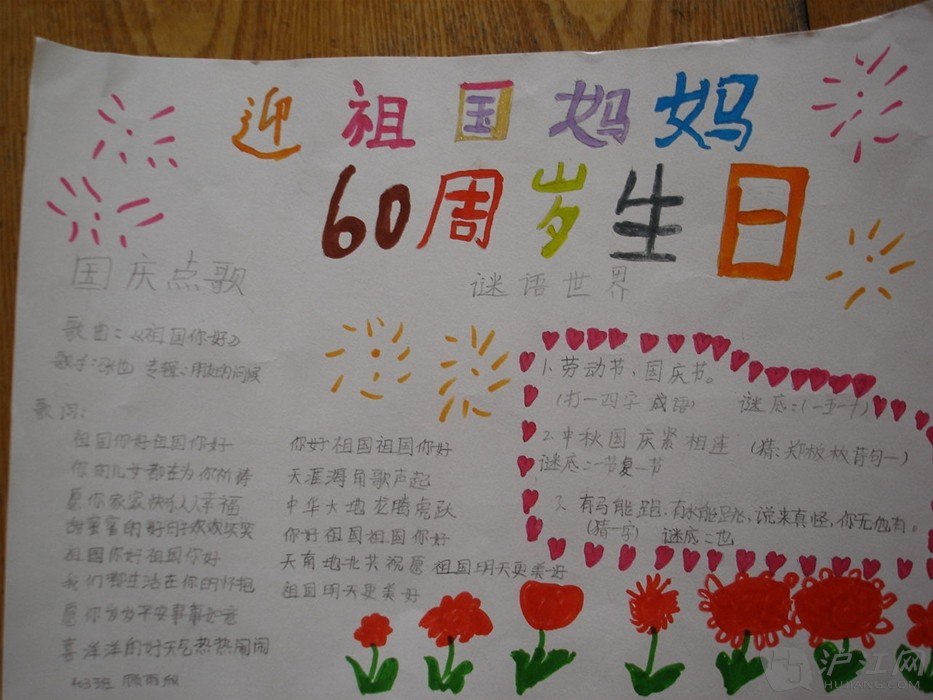 迎祖国妈妈
60周岁生日
国庆点歌
歌曲：《祖国你好》
歌手：张也
歌词：
祖国你好祖国你好
你的儿女都在为你祈祷
愿你家家快乐人人幸福
甜蜜蜜的好日子欢欢笑笑
祖国你好祖国你好
我们都生活在你的怀抱
愿你岁岁平安事事如意
喜洋洋的好天气热热闹闹
403班
你好祖国祖国你好
天涯海角歌声起
中华大地龙腾虎跃
你好祖国祖国你好
天南地北共祝愿祖国明天更美好
祖国明天更美好
谜语世界
1、劳动节、国庆节。
（打一四字成语） 谜底：（一五一十）
2、中秋国庆紧相连 （猜：郑板桥诗句一）
谜底：一节复一节
3、有马能跑，有水能跳，说来真怪，你无他有。
（猜一字） 谜底：也
沪江网
HUJIANG.COM